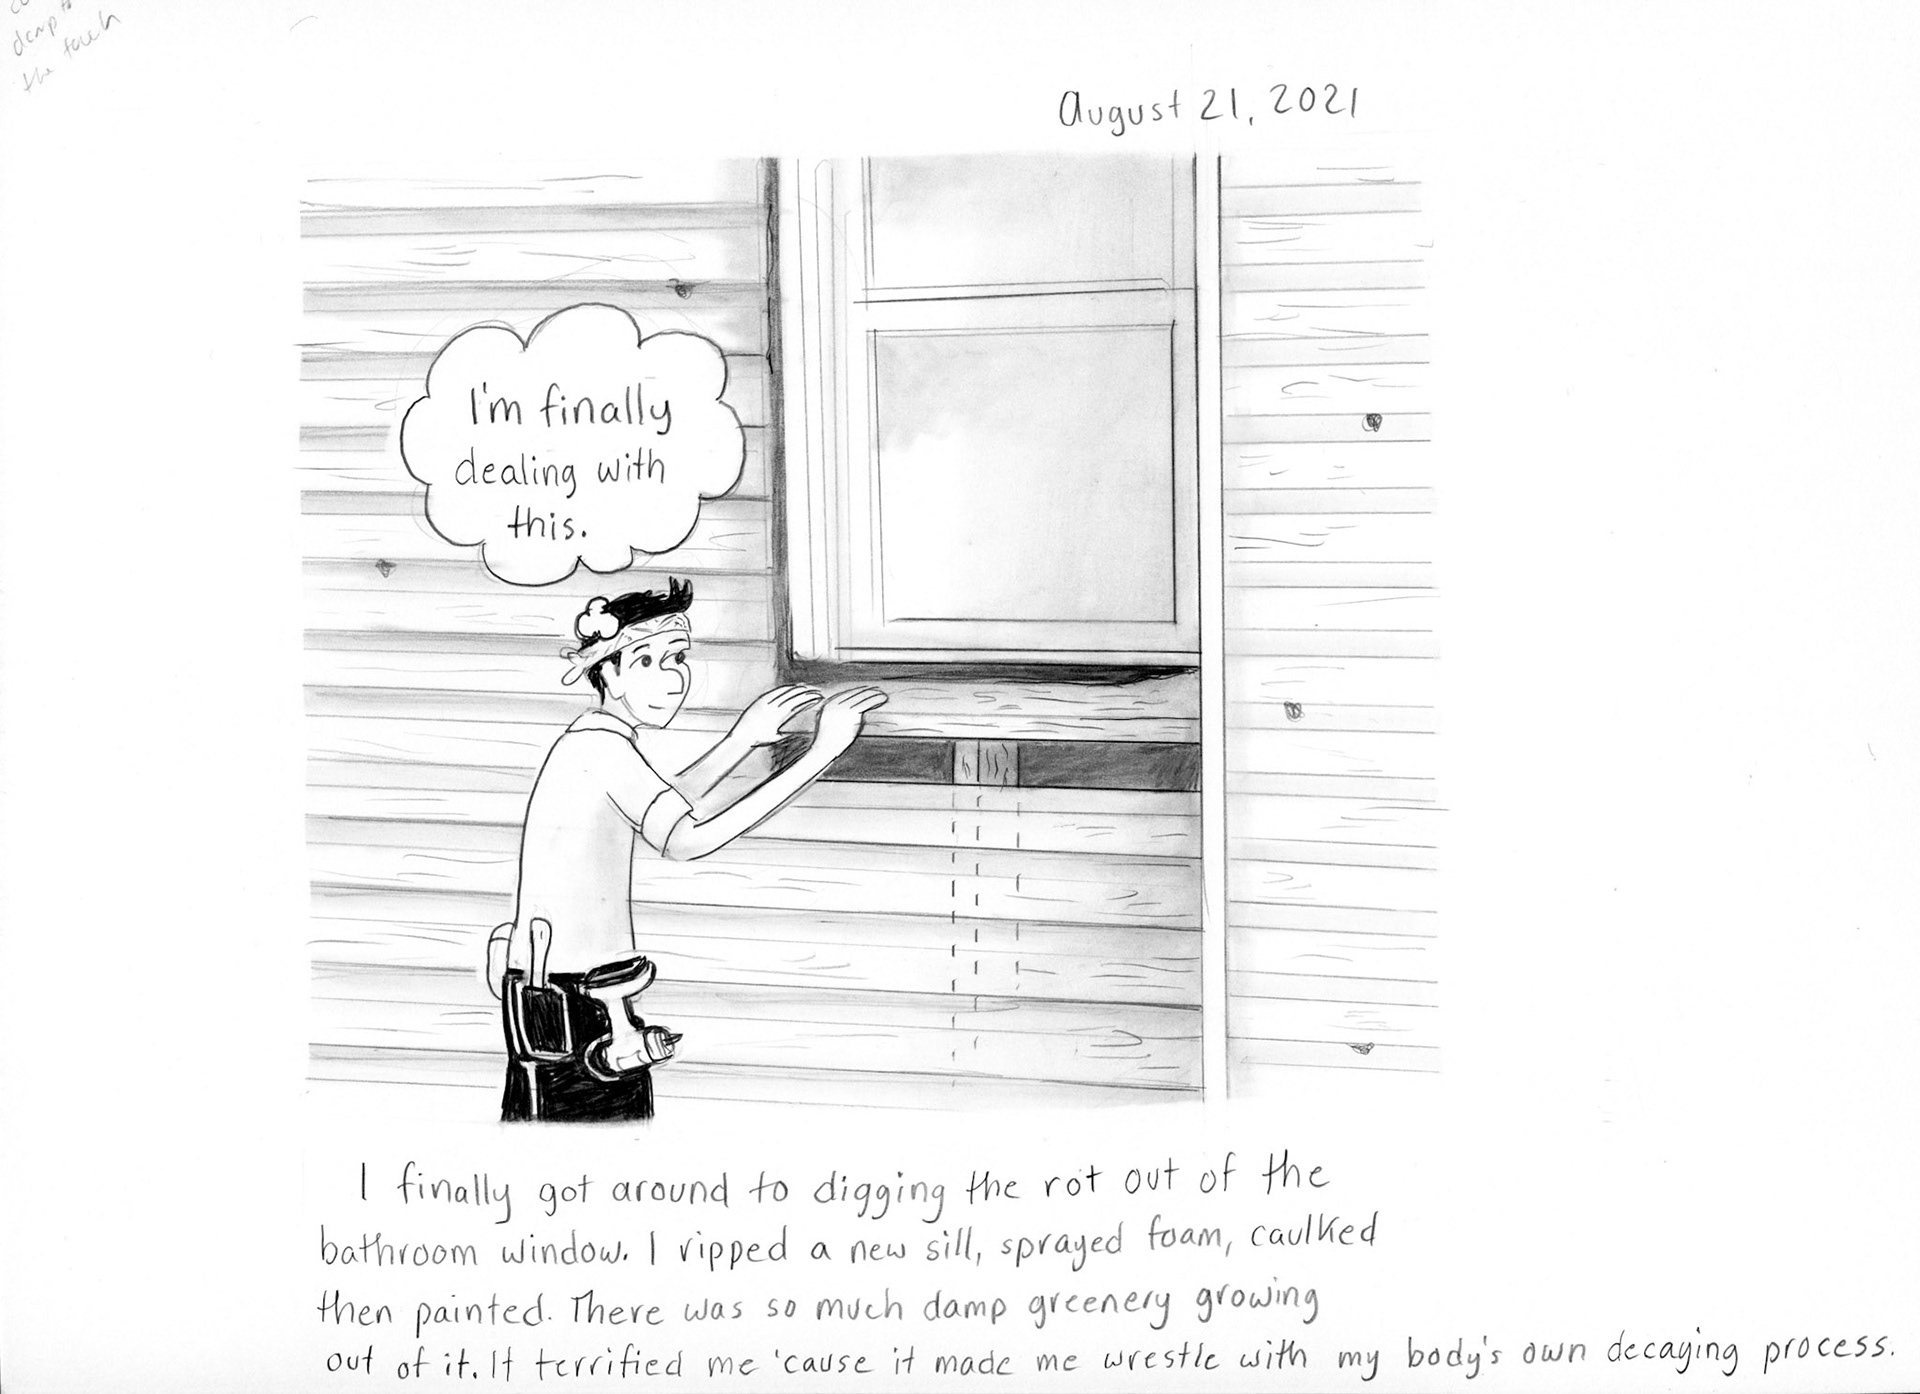 damp to
the touch
August 21, 2021
I'm finally
dealing with
this.
I finally got around to digging the rot out of the
bathroom window. I ripped a new sill, sprayed foam, caulked
then painted. There was so much damp greenery growing
out of it. It terrified me 'cause it made me wrestle with my body's own decaying process.